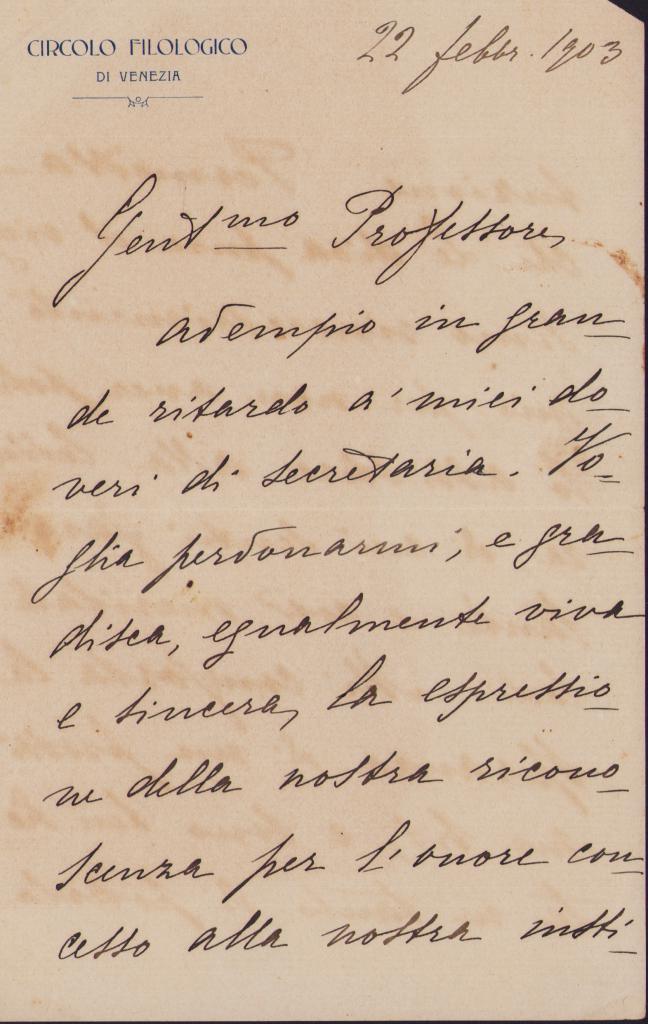 CIRCOLO FILOLOGICO
DI VENEZIA
22 febbr. 1903
Gentmo Professore,
adempio in gran
de ritardo a' miei do
veri di secretaria. Vo
glia perdonarmi, e gra
disca, egualmente viva
e sincera, la espressio
ne della nostra ricono
scenza per l'onore con
cesso alla nostra insti